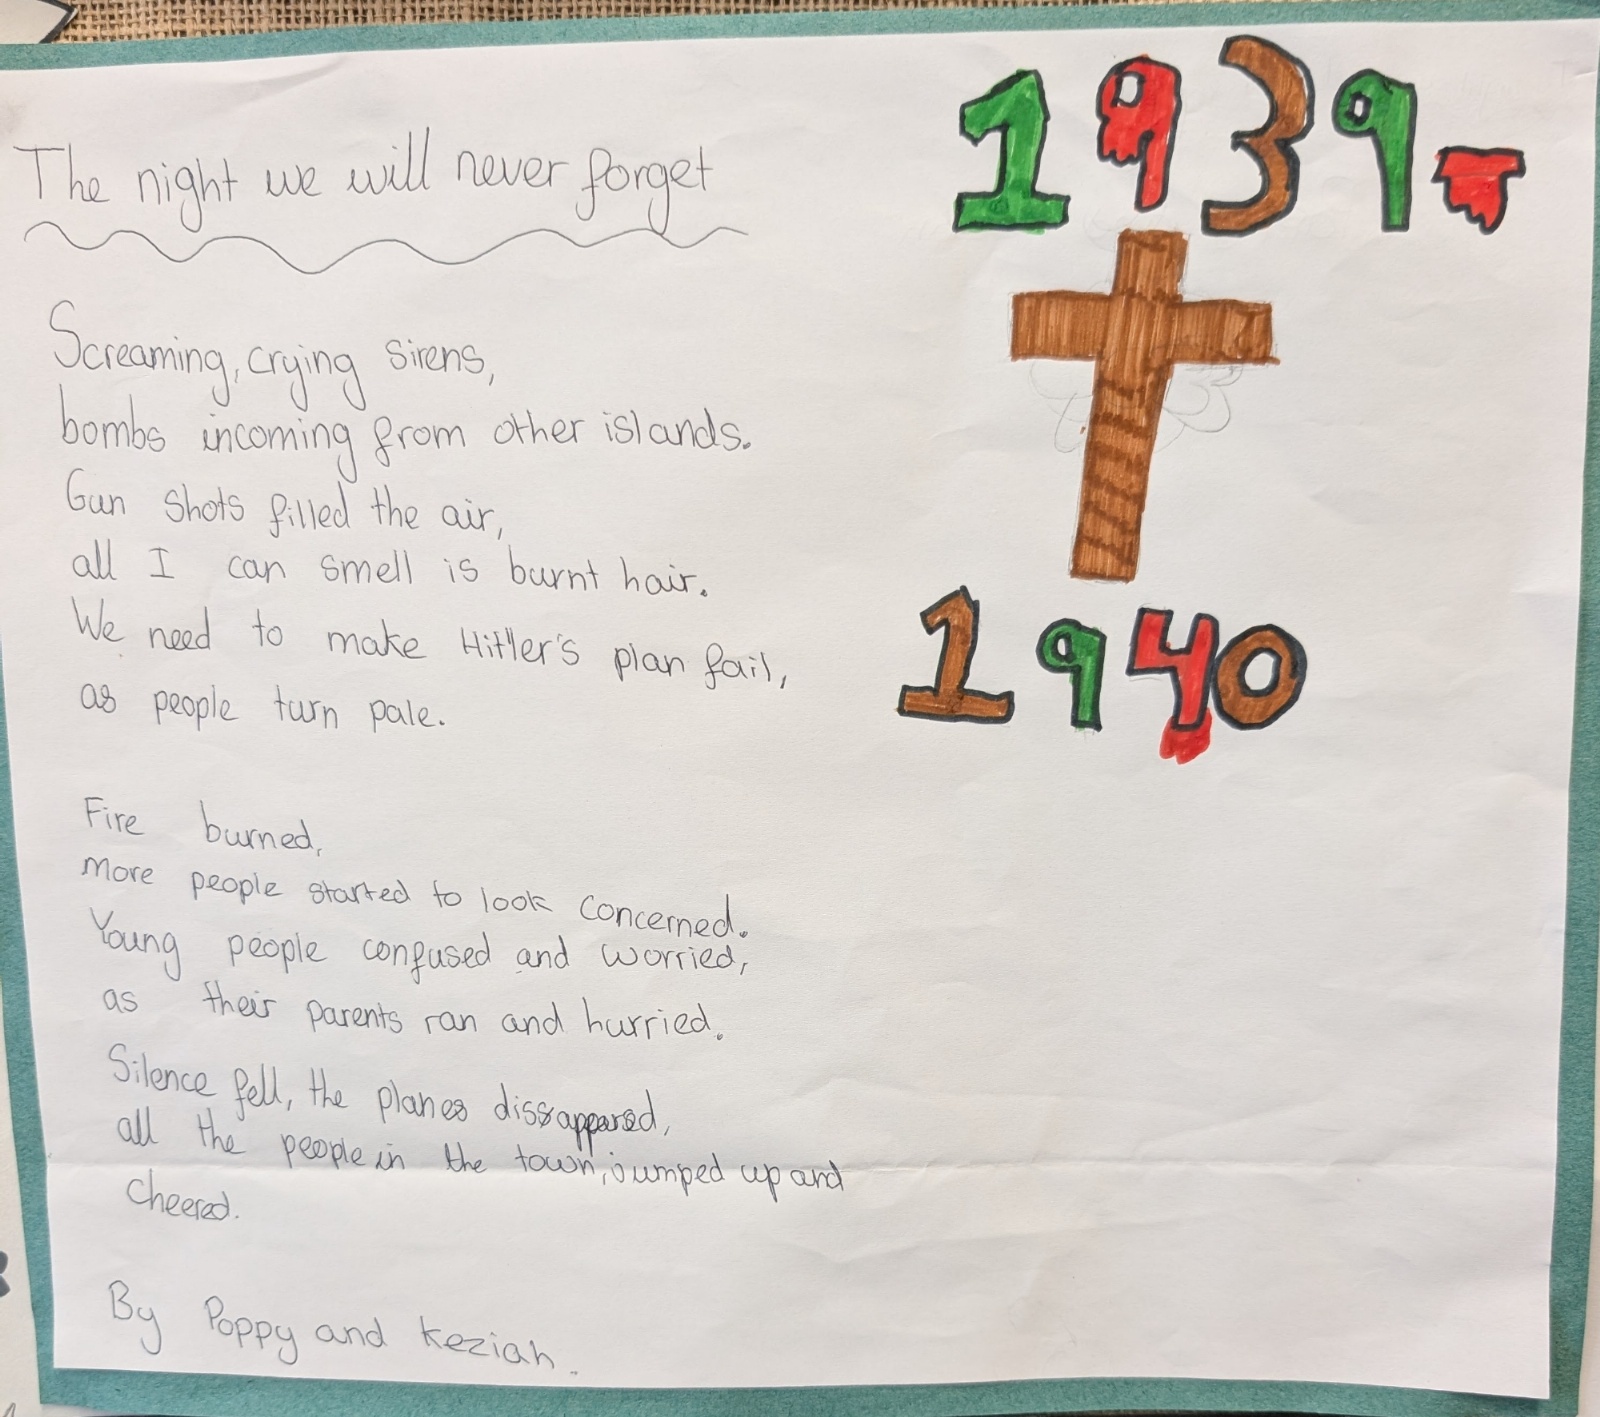 The night we will never forget
1939-
1940
Screaming, crying sirens,
bombs incoming from other islands.
Gun shots filled the air,
all I can smell is burnt hair.
We need to make Hitler's plan fail,
as people turn pale.
Fire burned,
More people started to look concerned.
Young people confused and worried,
as their parents ran and hurried.
Silence fell, the planes dissappared,
all the people in the town, jumped up and
cheered.
By Poppy and Keziah.